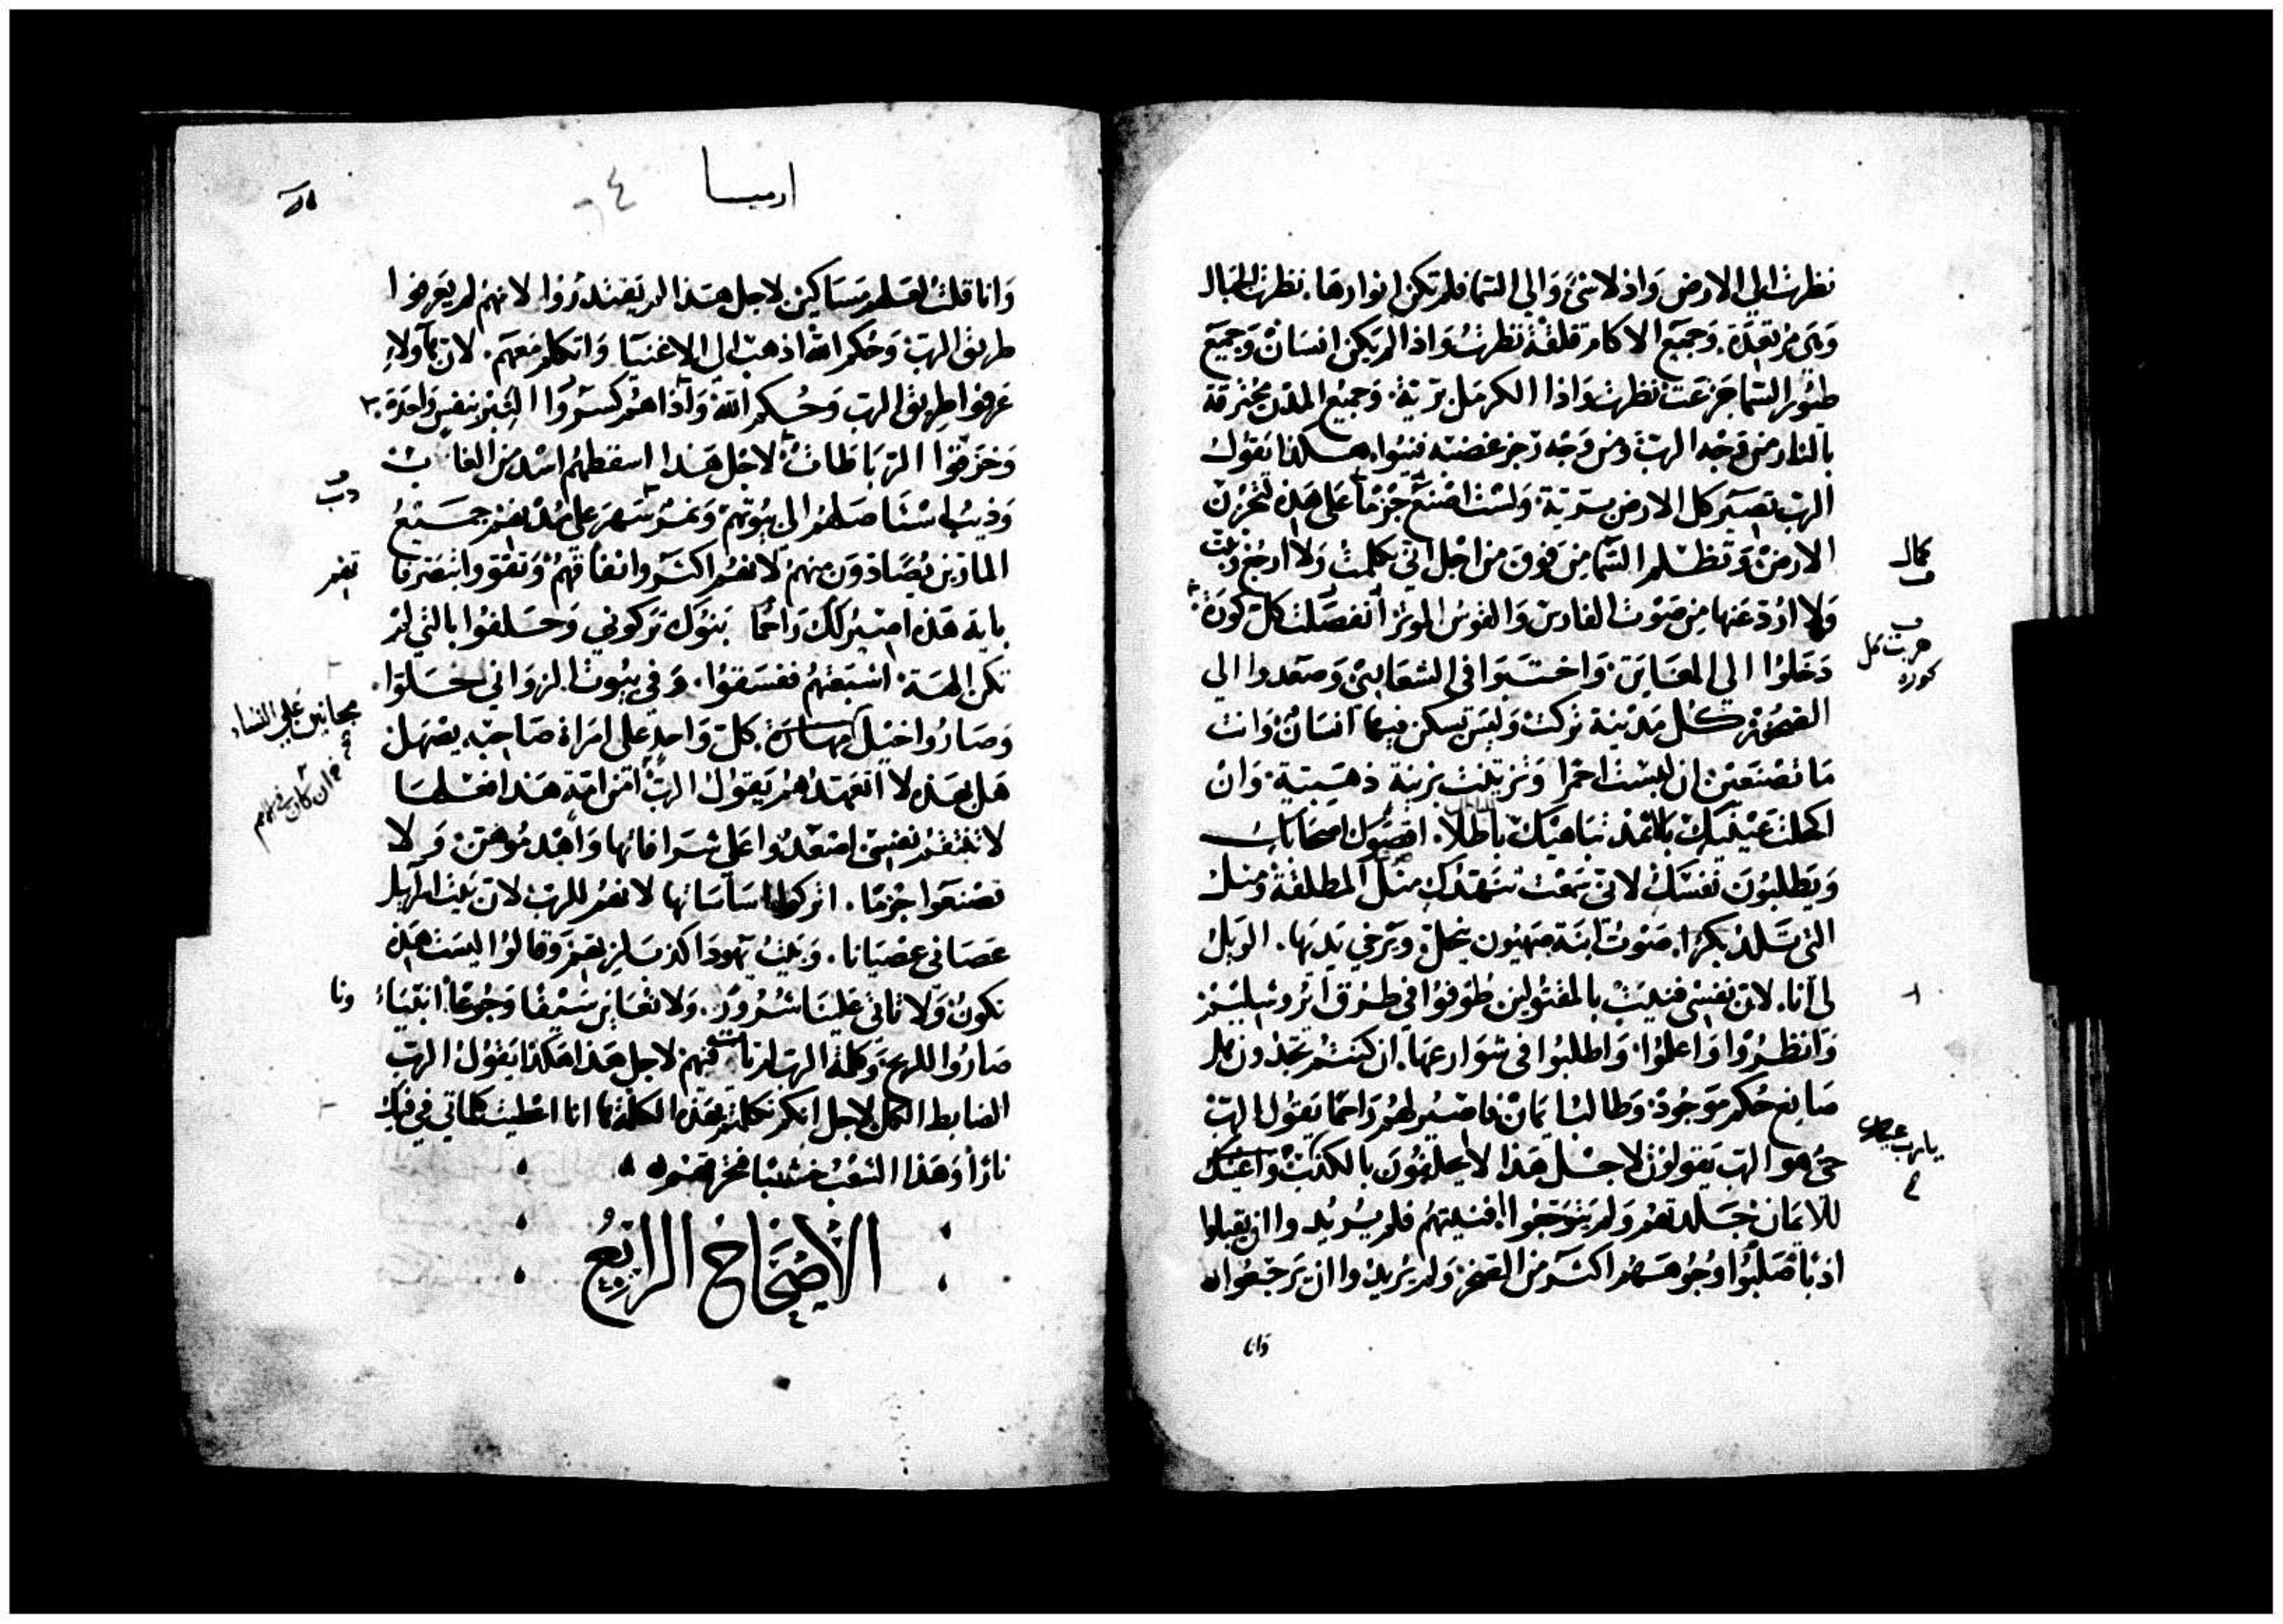 نظرت الي الارض واذ لا شئ والي السما فلم تكن انوارها. نظرت الجبال
وهي مرتعدة. وجميع الاكام قلقة نظرت واذا لم يكن انسان وجميع
طيور السما جزعت نظرت واذا الكرمل برية. وجميع المدن محترقة
بالنار من وجه الرب ومن وجه رجز غضبه فنيوا. هكذا يقول
الرب تصير كل الارض برية. ولست اصنع جزما على هذه لتحزن
الارض وتظلم السما من فوق من اجل اني تكلمت ولا ارجع
ولا ارد عنها من صوت الفارس والقوس الموتر انفصلت كل كورة
دخلوا الي المغاير. واختبوا في الشعاب وصعدوا الي
الصخور كل مدينة تركت وليس يسكن فيها انسان وانت
ما تصنعين ان لبست احمرا وتزينت بزينة ذهبية. وان
اكحلت عينيك بالاثمد تباهيك باطلا. اقصوك اصحابك
ويطلبون نفسك لاني سمعت تنهدك مثل المطلقة ومثل
التي تلد بكرها. صوت ابنة صهيون ينحل. وترخي يديها. الويل
لي انا. لان نفسي فنيت بالمقتولين طوفوا في طرق اثروشليم
وانظروا واعلموا. واطلبوا في شوارعها. ان كنتم تجدون هل
صانع حكم موجود. وطالبا يمان فاصير لهم راحما يقول الرب
حي هو الرب يقولون لاجل هذا لا يحلفون بالكذب واعينك
للايمان جلدتهم ولم يتوجعوا افنيتهم فلم يريدوا ان يقبلوا
ادبا صلبوا وجوههم اكثر من الصخر ولم يريدوا ان يرجعوا
وانا
كمال
هربت كل
كوره
يا رب عينيك
ارميا
٤
وانا قلت لعلهم مساكين لاجل هذا لم يقتدروا لانهم لم يعرفوا
طريق الرب وحكم الله اذهب الي الاغنيا واتكلم معهم. لان هاولاء
عرفوا طريق الرب وحكم الله واذا هم كسروا النير بنفس واحدة.
وخرقوا الرباطات لاجل هذا اسقطهم اسد من الغاب
وذيب استاصلهم الي بيوتهم ونمر سهر على مدنهم جميع
المارين يصادون منهم لانهم اكثروا نفاقهم وتقووا بتصرفا
باية هذه اصير لك راحما بنوك تركوني وحلفوا بالتي لم
تكن الهة. اشبعتهم ففسقوا. وفي بيوت الزواني حلوا
وصاروا خيل مهارة. كل واحد على امراة صاحبه يصهل
هل بعد هذه لا اتعهدهم يقول الرب ام من امة هذا فعلها
لا تنتقم نفسي اصعدوا علي شرافاتها واهدموهن ولا
تصنعوا جزما. اتركوا اساساتها لانهم للرب لان بيت اسرايل
عصاني عصيانا. وبيت يهودا كذب لربهم وقالوا ليست هذه
تكون ولا تاتي علينا شرور. ولا نعاين سيفا وجوعا انبياء
صاروا للريح وكلمة الرب لم تات فيهم لاجل هذا هكذا يقول الرب
الضابط الكل لاجل انكم تكلمتم هذه الكلمة ها انا اعطيت كلماتي في فيك
نارا وهذا الشعب خشبا فتحرقهم
الاصحاح الرابع
دب
تهم
مجانين علي النساء
ونا